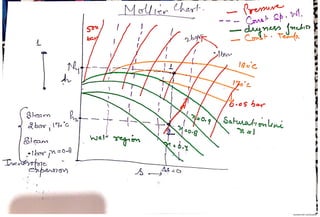 Mollier Chart.
Pressure
Const Sp. Vol.
dryness fraction
Const. Temp
500
bar
2 bar
.1bar
180°C
170°C
0.05 bar
h₁
h
1
h₂
2
x=0.9
x=0.8
x=0.7
Saturation line
x=1
wet region
Steam
2 bar, 170°C
Steam
.1 bar, x=0.8
Isentropic
expansion
S
ΔS=0